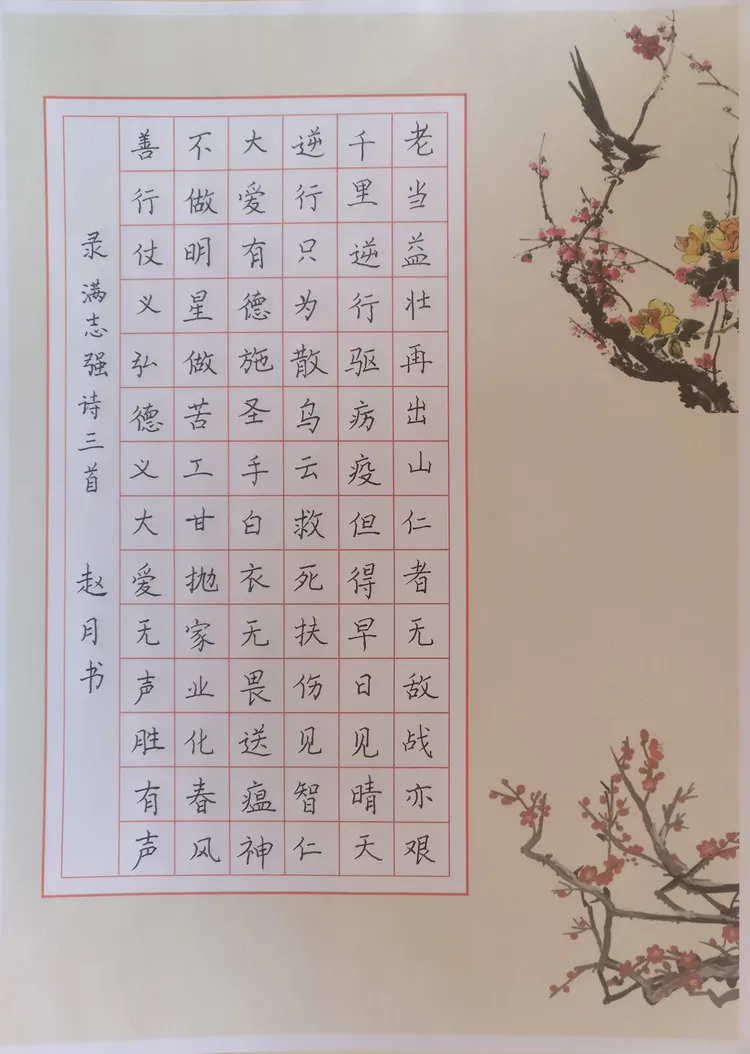 老当益壮再出山仁者无敌战亦艰
千里逆行驱疠疫但得早日见晴天
逆行只为散乌云救死扶伤见智仁
大爱有德施圣手白衣无畏送瘟神
不做明星做苦工甘抛家业化春风
善行仗义弘德义大爱无声胜有声
录满志强诗三首 赵月书